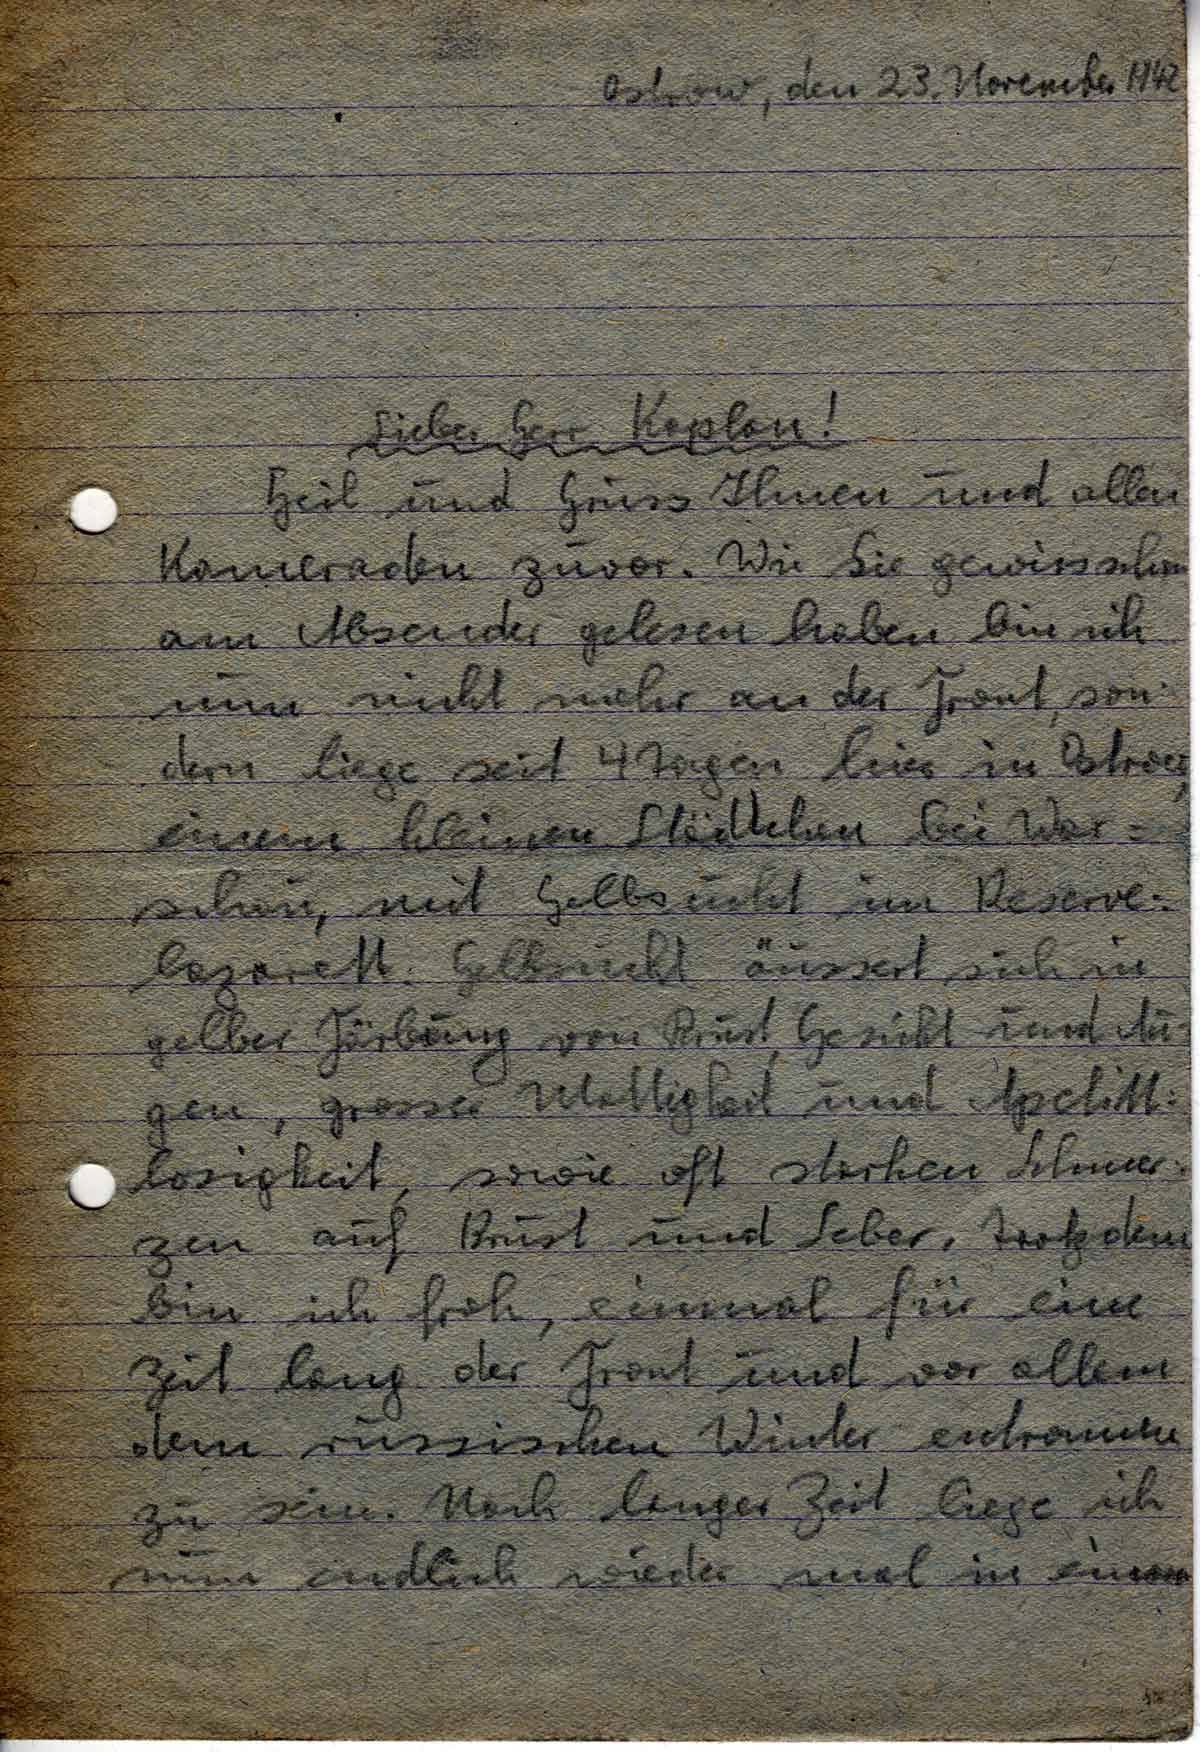 Ostrow, den 23. November 1942
Lieber Herr Kaplan!
Heil und Gruss Ihnen und allen
Kameraden zuvor. Wie Sie gewiss schon
am Absender gelesen haben bin ich
nun nicht mehr an der Front, son-
dern liege seit 4 Tagen hier in Ostrow,
einem kleinen Städtchen bei War=
schau, mit Gelbsucht im Reserve-
lazarett. Gelbsucht äussert sich in
gelber Färbung von Brust, Gesicht und Au-
gen, grosser Mattigkeit und Apetitt=
losigkeit, sowie oft starken Schmer-
zen auf Brust und Leber. Trotzdem
bin ich froh, einmal für eine
Zeit lang der Front und vor allem
dem russischen Winter entronnen
zu sein. Nach langer Zeit liege ich
nun endlich wieder mal in einem